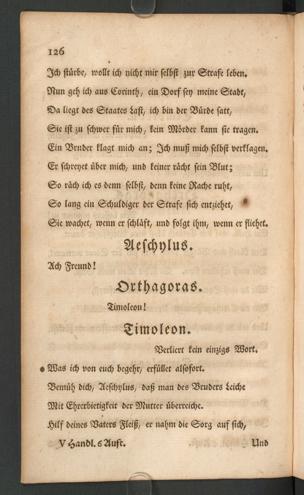 126
Ich stürbe, wollt ich nicht mir selbst zur Strafe leben.
Nun geh ich aus Corinth, ein Dorf sey meine Stadt,
Da liegt des Staates Last, ich bin der Bürde satt,
Sie ist zu schwer für mich, kein Mörder kann sie tragen.
Ein Bruder klagt mich an; Ich muß mich selbst verklagen.
Er schreyet über mich, und keiner rächt sein Blut;
So räch ich es denn selbst, denn keine Rache ruht,
So lang ein Schuldiger der Strafe sich entziehet,
Sie wachet, wenn er schläft, und folgt ihm, wenn er fliehet.
Aeschylus.
Ach Freund!
Orthagoras.
Timoleon!
Timoleon.
Verliert kein einzigs Wort.
Was ich von euch begehr, erfüllet alsofort.
Bemüh dich, Aeschylus, daß man des Bruders Leiche
Mit Ehrerbietigkeit der Mutter überreiche.
Hilf deines Vaters Fleiß, er nahm die Sorg auf sich,
V Handl. 6 Auft. Und